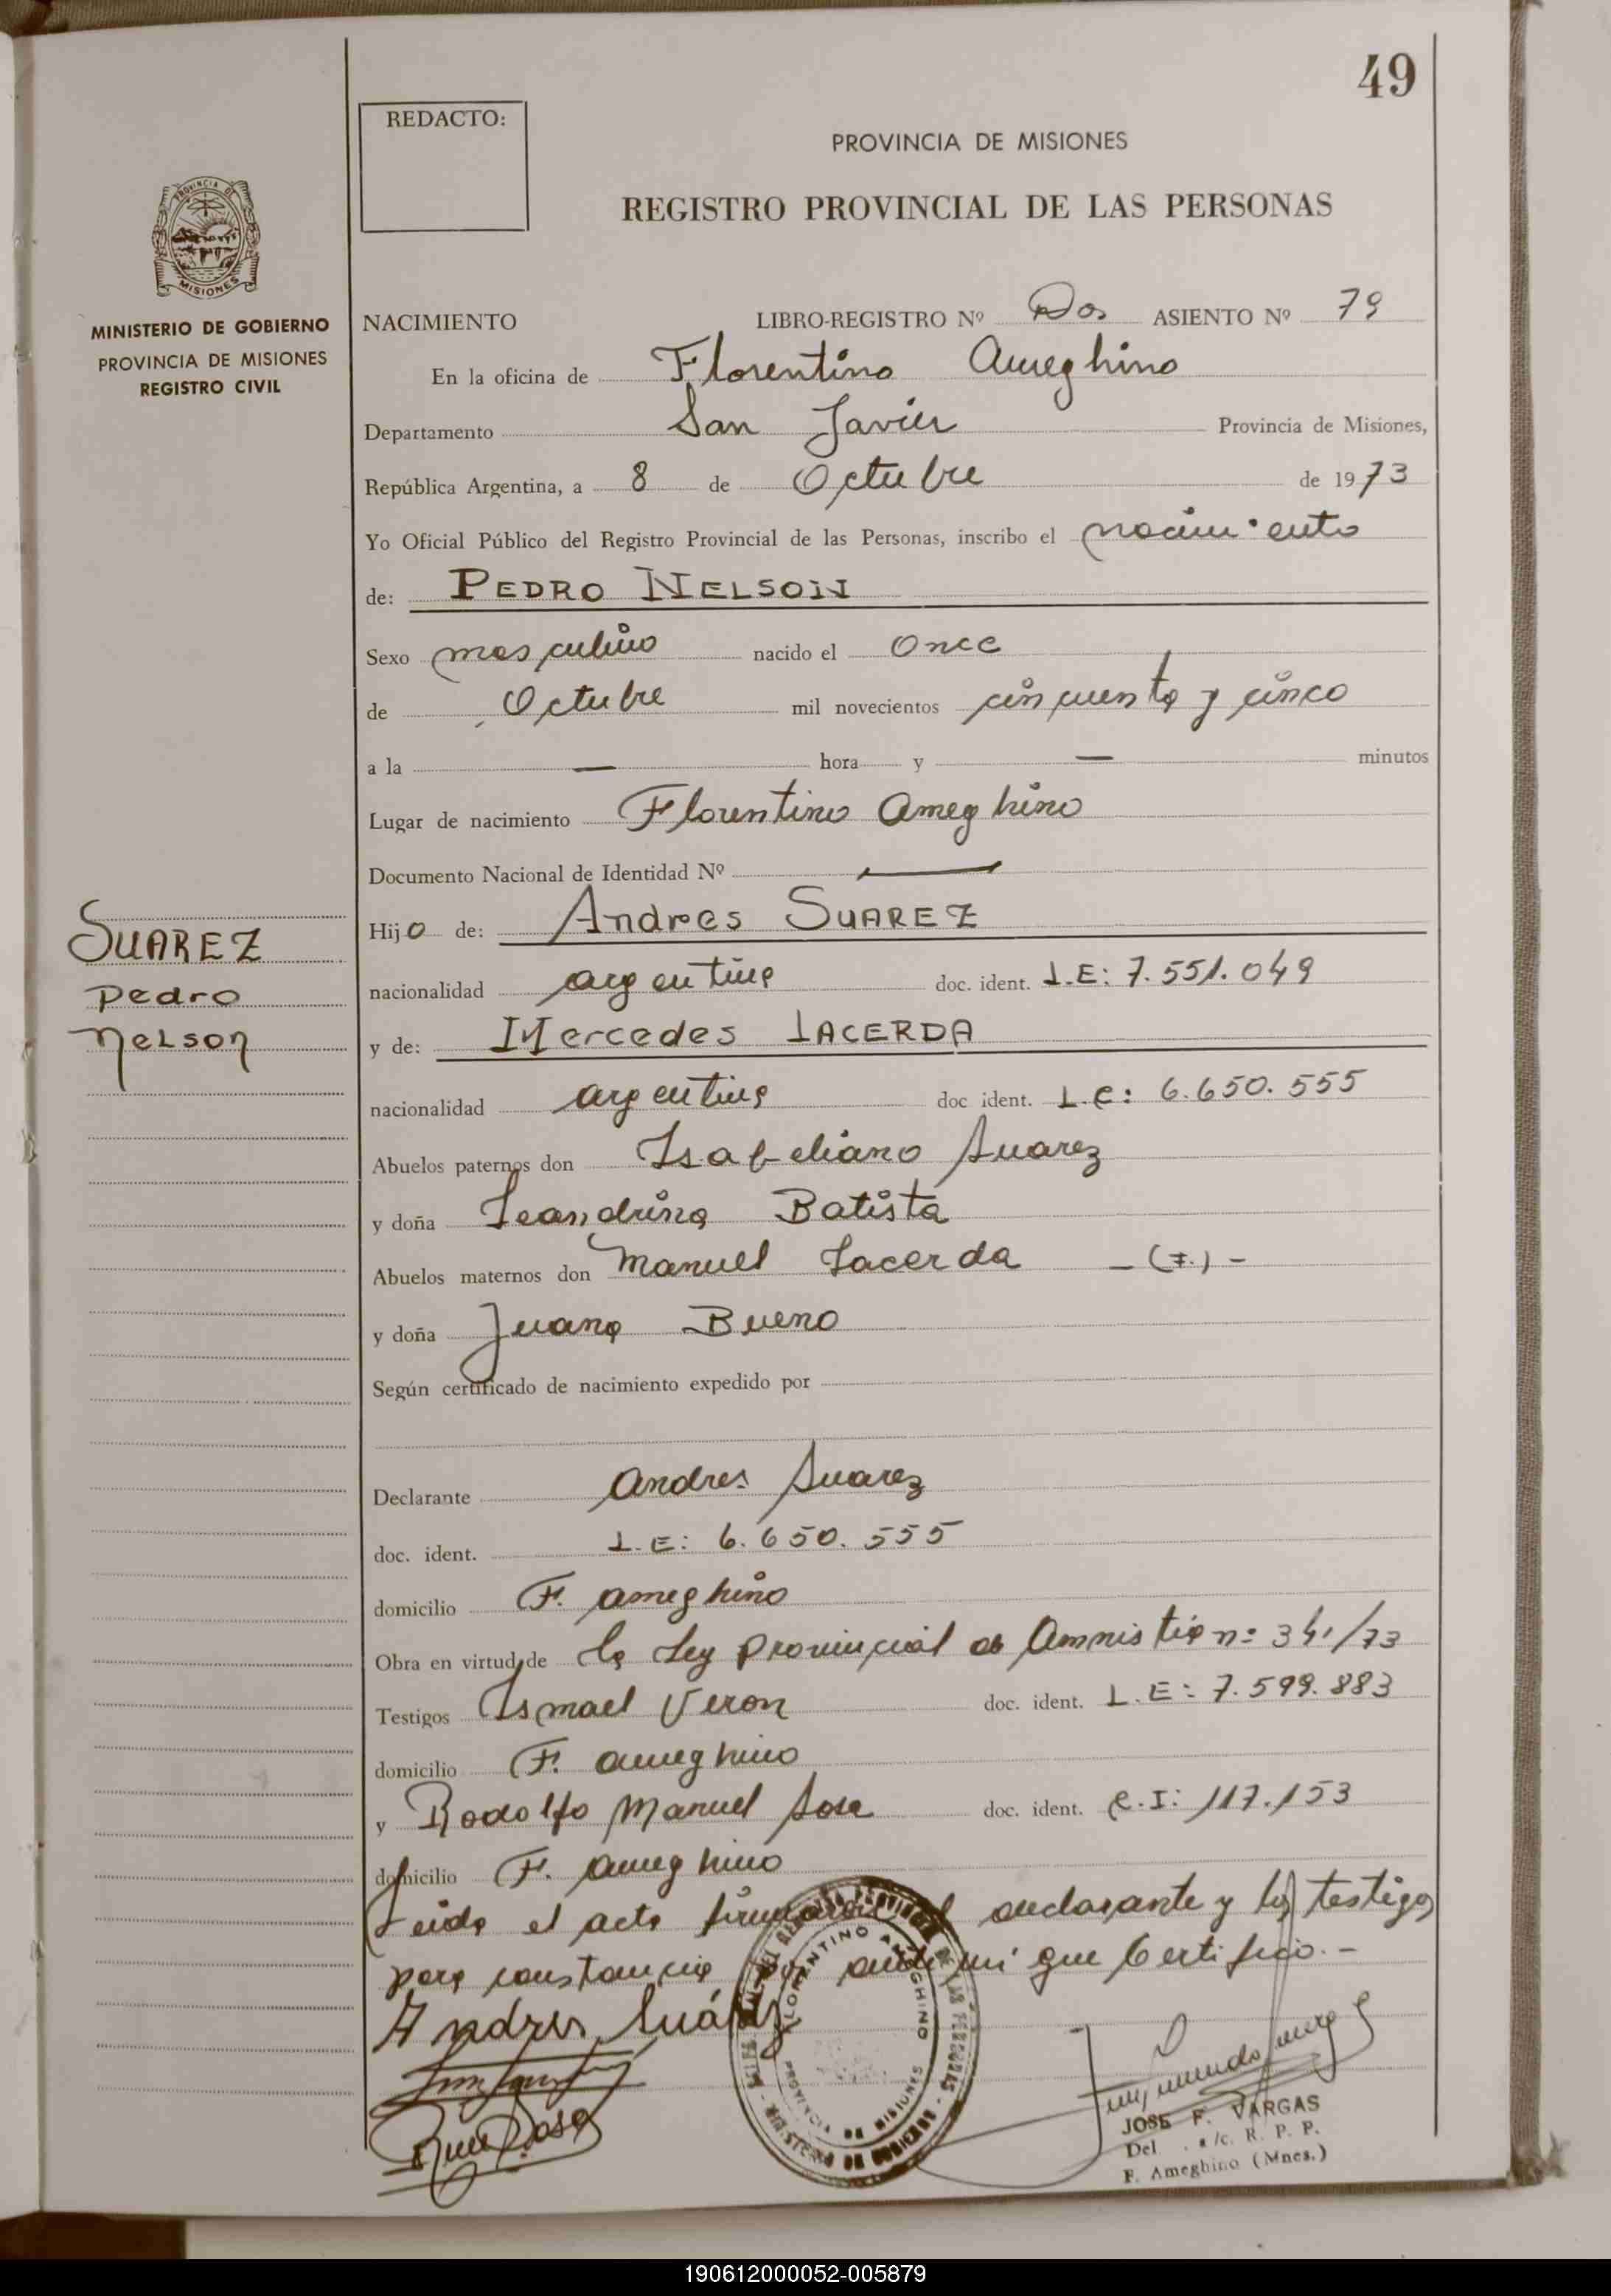 49
REDACTO:
PROVINCIA DE MISIONES
REGISTRO PROVINCIAL DE LAS PERSONAS
PROVINCIA DE
MISIONES
MINISTERIO DE GOBIERNO
PROVINCIA DE MISIONES
REGISTRO CIVIL
NACIMIENTO LIBRO-REGISTRO Nº Dos ASIENTO Nº 79
En la oficina de Florentino Ameghino
Departamento San Javier Provincia de Misiones,
República Argentina, a 8 de Octubre de 1973
Yo Oficial Público del Registro Provincial de las Personas, inscribo el nacimiento
de: PEDRO NELSON
Sexo masculino nacido el Once
de Octubre mil novecientos cincuenta y cinco
a la — hora y — minutos
Lugar de nacimiento Florentino Ameghino
Documento Nacional de Identidad Nº —
SUAREZ
Pedro
Nelson
Hijo de: Andres SUAREZ
nacionalidad argentina doc. ident. L.E: 7.551.049
y de: Mercedes LACERDA
nacionalidad argentina doc ident. L.C: 6.650.555
Abuelos paternos don Isabeliano Suarez
y doña Leandrina Batista
Abuelos maternos don Manuel Lacerda - (F.) -
y doña Juana Bueno
Según certificado de nacimiento expedido por
Declarante Andres Suarez
doc. ident. L.E: 6.650.555
domicilio F. Ameghino
Obra en virtud de la Ley Provincial de Amnistia n: 341/73
Testigos Ismael Veron doc. ident. L.E: 7.599.883
domicilio F. Ameghino
y Rodolfo Manuel Sosa doc. ident. C.I: 117.153
domicilio F. Ameghino
Leida el acta firman declarante y los testigos
para constancia ante mi que Certifico.-
Andres Suárez
FLORENTINO AMEGHINO
PROVINCIA DE MISIONES
JOSE F. VARGAS
Del . a/c. R. P. P.
F. Ameghino (Mnes.)
190612000052-005879